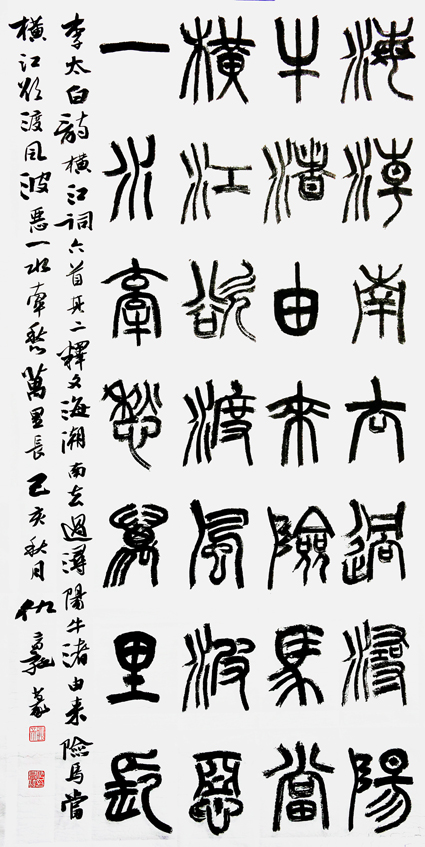 海潮南去過潯陽
牛渚由来險馬當
橫江欲渡風波惡
一水牽愁萬里長
李太白詩橫江詞六首其二釋文海潮南去過潯陽牛渚由来險馬當
橫江欲渡風波惡一水牽愁萬里長己亥秋月仇